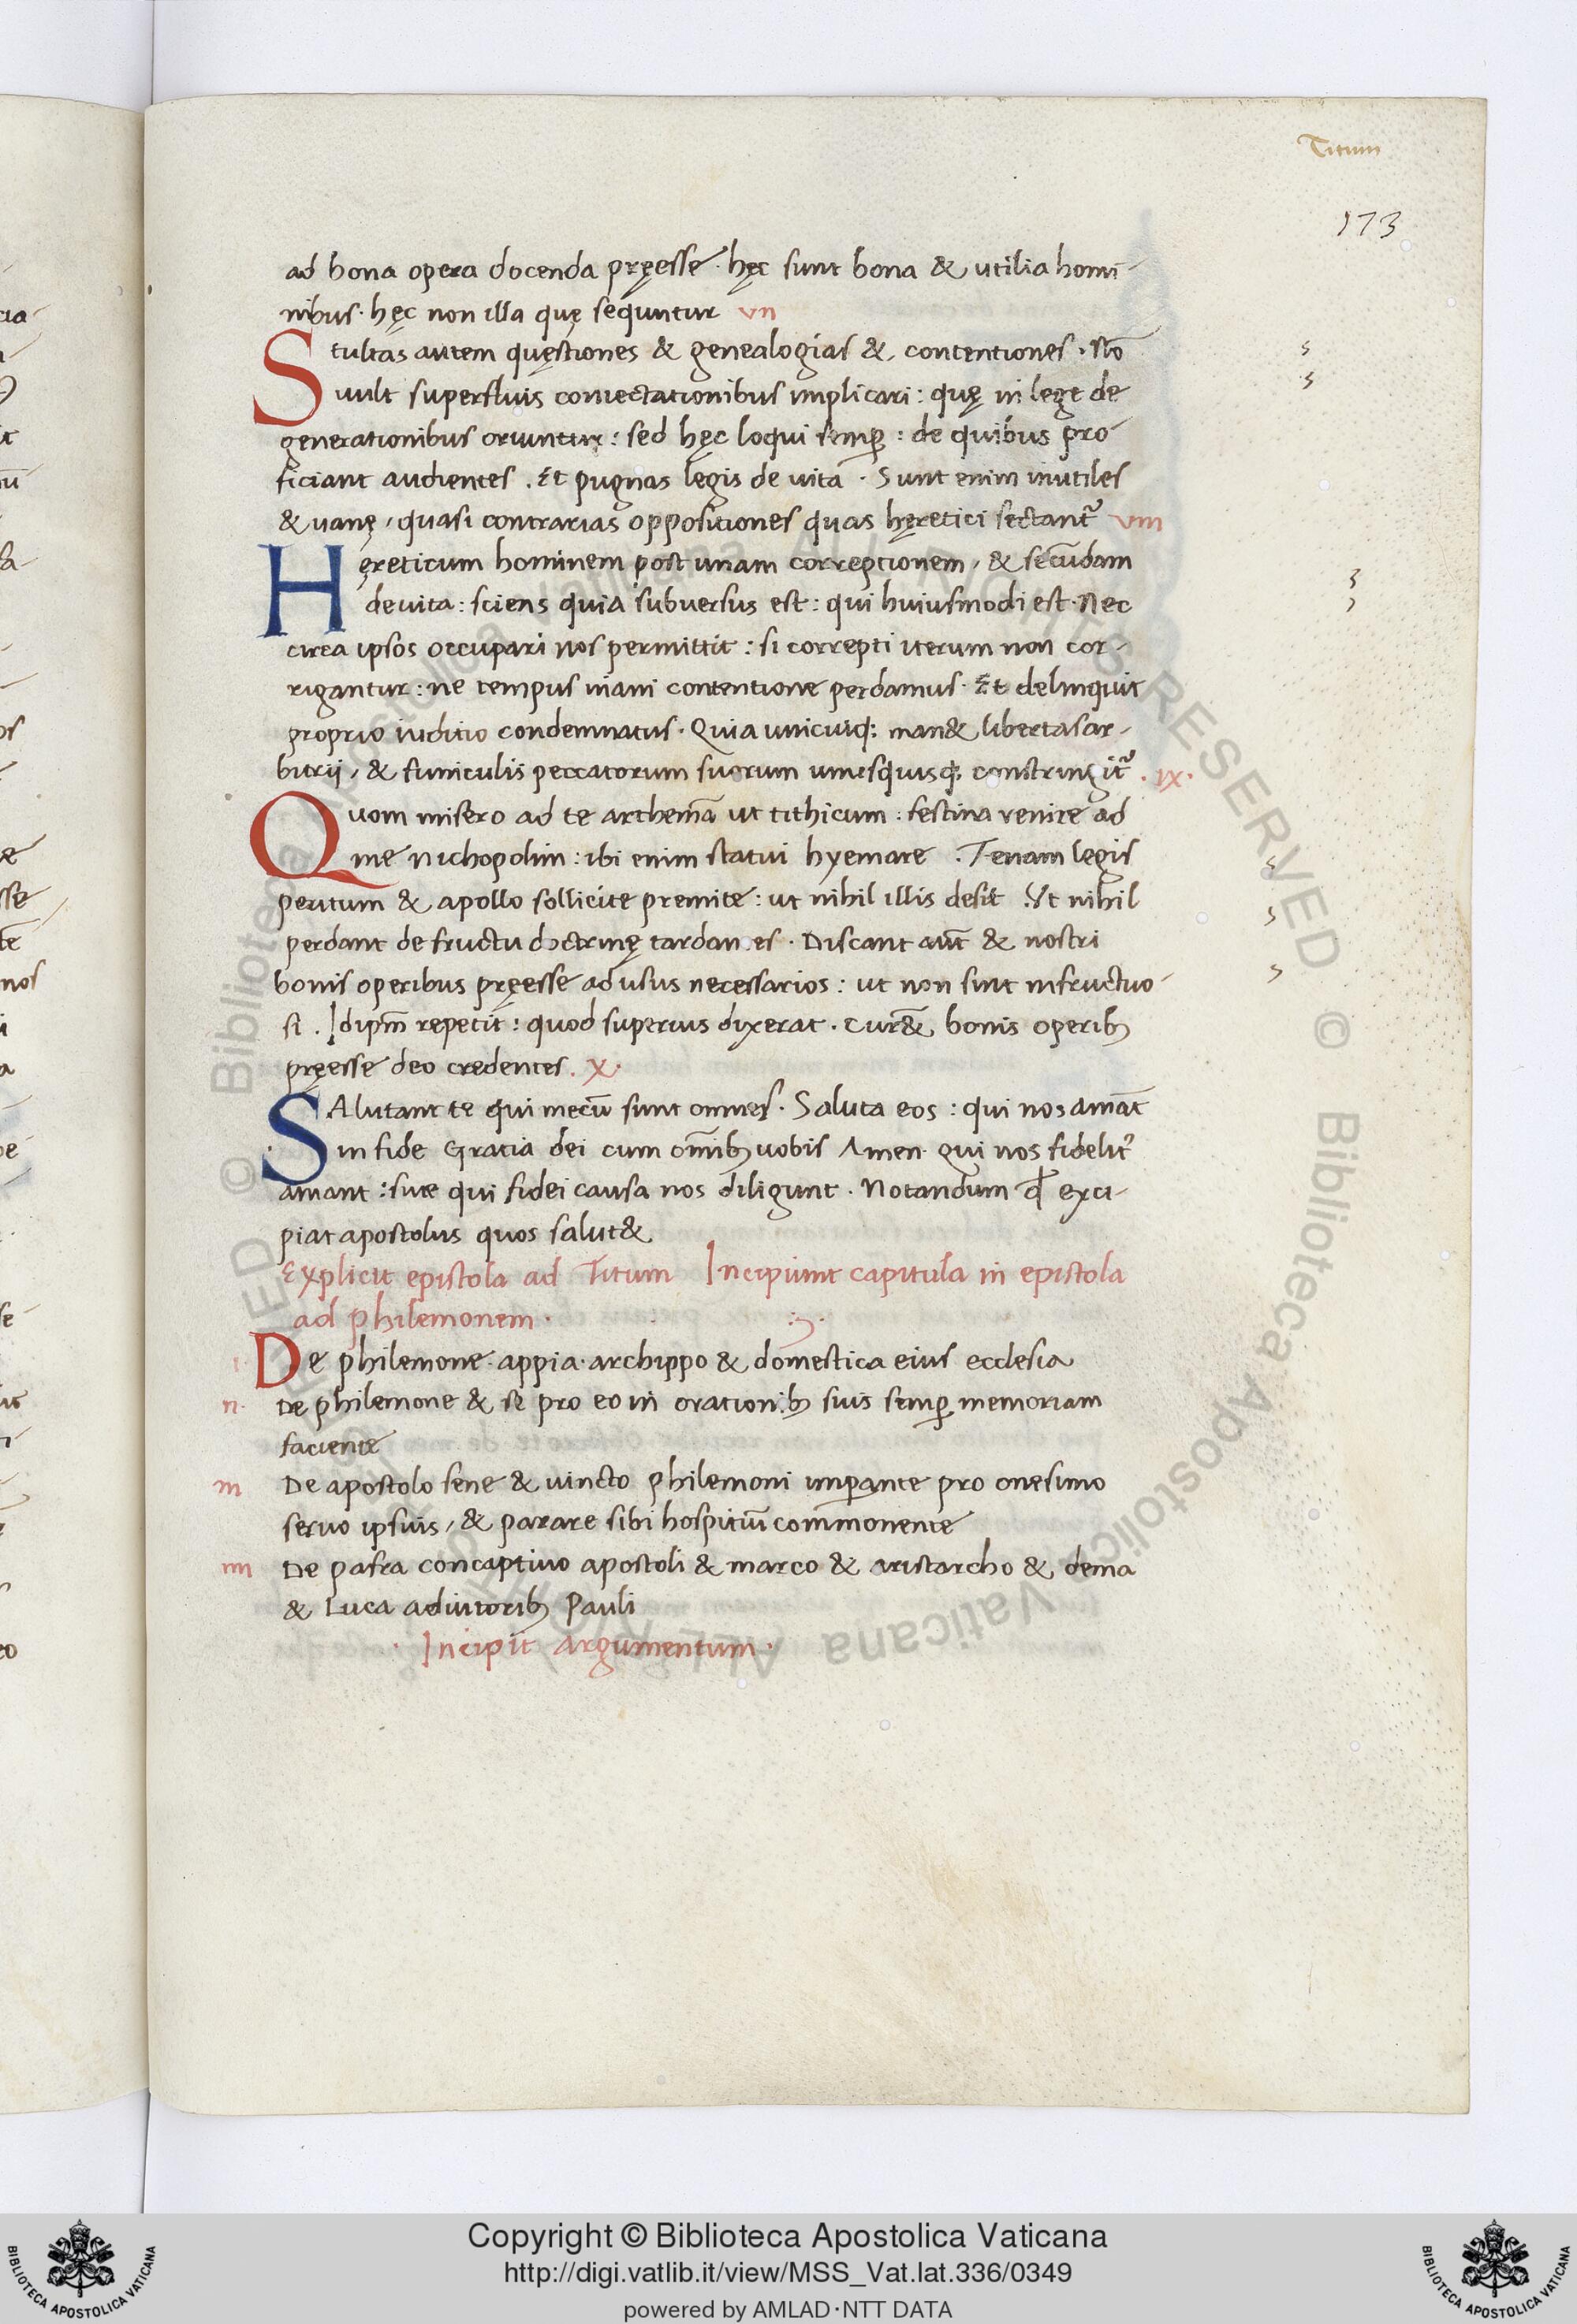 Titum
173
ad bona opera docenda pręesse. hęc sunt bona & utilia homi-
nibus. hęc non illa quę sequntur vii
Stultas autem quęstiones & genealogias &, contentiones. Nō
uult superfluis coniectationibus implicari: quę in lege de
generationibus oriuntur: sed hęc loqui semꝑ: de quibus pro-
ficiant audientes. Et pugnas legis de uita. Sunt enim inutiles
& uanę, quasi contrarias oppositiones quas hęretici sectantᷣ viii
Hęreticum hominem post unam correptionem, & secūdam
deuita: sciens quia subuersus est: qui huiusmodi est. Nec
circa ipsos occupari nos permittit: si correpti iterum non cor-
rigantur: ne tempus inani contentione perdamus. Et delinquit
proprio iuditio condemnatus. Quia unicuiqꝫ man& libertas ar-
bitrij, & funiculis peccatorum suorum unusquisqꝫ constringitᷣ. ix.
Quom misero ad te arthemā ut tithicum: festina venire ad
me Nichopolim: ibi enim statui hyemare. Tenam legis
peritum & apollo sollicite premite: ut nihil illis desit. Ut nihil
perdant de fructu doctrinę tardan es. Discant aūt & nostri
bonis operibus pręesse ad usus necessarios: ut non sint infructuo-
si. Idipm̄ repetit: quod superius dixerat. Cur& bonis operibꝫ
pręesse deo credentes. x.
SAlutant te qui mecū sunt omnes. Saluta eos: qui nos amāt
in fide Gratia dei cum om̄ibꝫ uobis Amen. qui nos fidelitᷣ
amant: siue qui fidei causa nos diligunt. Notandum qđ exci-
piat apostolus quos salut&
Explicit epistola ad Titum Incipiunt capitula in epistola
ad philemonem.
i. De philemone. appia. archippo & domestica eius ecclesia
ii. De philemone & se pro eo in orationibꝫ suis semꝑ memoriam
faciente
iii De apostolo sene & uincto philemoni imꝑante pro onesimo
seruo ipsius, & parare sibi hospitiū commonente
iiii De pafra concaptiuo apostoli & marco & aristarcho & dema
& Luca adiutoribꝫ Pauli
. Incipit argumentum.
Copyright © Biblioteca Apostolica Vaticana
http://digi.vatlib.it/view/MSS_Vat.lat.336/0349
powered by AMLAD·NTT DATA